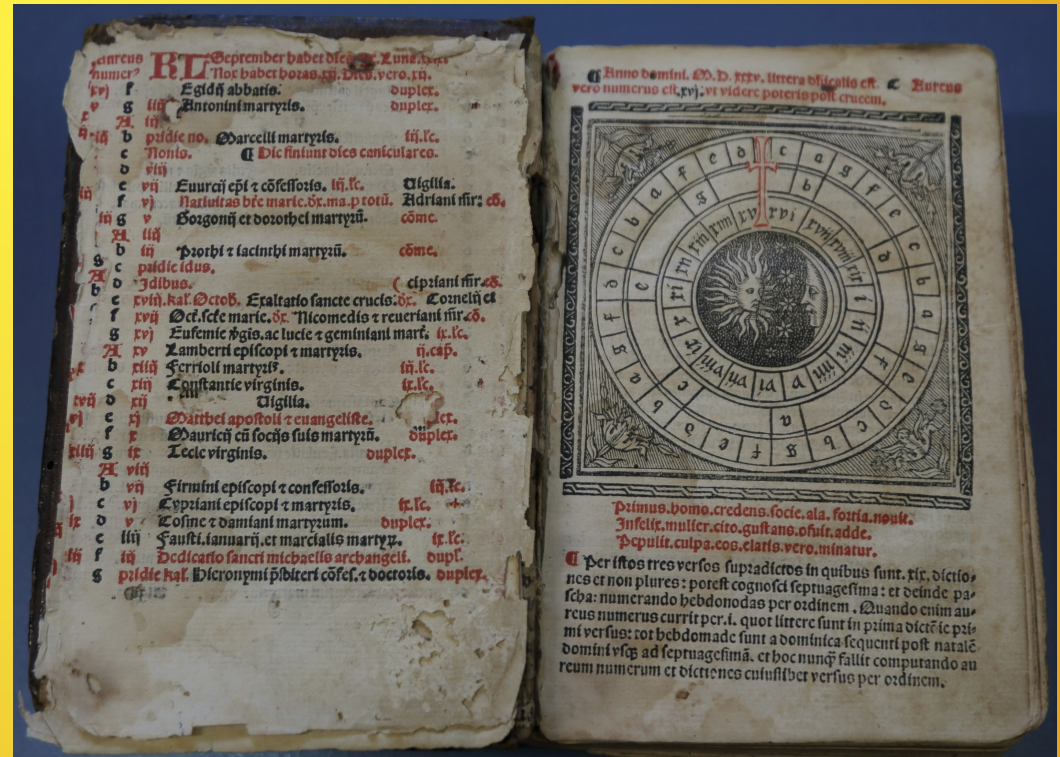 Aureus KL September habet dies xxx. Luna. xxx
numerꝰ Nox habet horas. xij. Dies. vero. xij.
xvj f Egidij abbatis. duplex.
v g iiij Antonini martyris. duplex.
A iij
b pridie no. Marcelli martyris. iij.lc.
c Nonis. ¶ Hic finiunt dies caniculares.
d viij
e vij Euurcij epi ⁊ cōfessoris. iij.lc. Uigilia.
f vj Natiuitas bte marie. dx. ma. p totū. Adriani mr̄: cō.
g v Gorgonij et dorothei martyrū. cōme.
A iiij
b iij Prothi ⁊ iacinthi martyrū. cōme.
c pridie idus.
d Idibus. ( cipriani mr̄. cō.
e xviij. kal. Octob. Exaltatio sancte crucis. dx. Cornelij et
f xvij Oct. scte marie. dx. Nicomedis ⁊ reueriani mr̄. cō.
g xvj Eufemie v̄gis. ac lucie ⁊ geminiani mart. ix.lc.
A xv Lamberti episcopi ⁊ martyris. ij.cap.
b xiiij Ferrioli martyrꝭ. ix.lc.
c xiij Constantie virginis. ix.lc.
d xij Uigilia.
e xj Mathei apostoli ⁊ euangeliste.
f x Mauricij cū socijs suis martyrū. duplex.
g ix Tecle virginis. duplex.
A viij
b vij Firmini episcopi ⁊ confessoris. iij.lc.
c vj Cypriani episcopi ⁊ martyris. ix.lc. +
d v Cosme ⁊ damiani martyrum. duplex.
e iiij Fausti. ianuarij. et marcialis martyꝝ. ix.lc.
f iij Dedicatio sancti michaelis archangeli. dupl.
g pridie kal. Hieronymi p̄sbiteri cōfes. ⁊ doctoris. duplex.
¶ Anno domini. M. D. xxxv. littera dn̄icalis est. c Aureus
vero numerus est. xvj. vt videre poteris post crucem.
d c a g f e c b a g e d c b g f e d b a g f d c b a f e
g b d f a c e
xvj xvij xviij xix i ij iij iiij v vj vij viij ix x xj xij xiij xiiij xv
Primus. homo. credens. socie. ala. fortia. nouit.
Infelix. mulier. cito. gustans. ofuit. adde.
Depulit. culpa. eos. elatis. vero. minatur.
¶ Per istos tres versos supradictos in quibus sunt. xix. dictio⸗
nes et non plures: potest cognosci septuagesima: et deinde pa⸗
scha: numerando hebdonodas per ordinem. Quando enim au⸗
reus numerus currit per. i. quot littere sunt in prima dictōe pri⸗
mi versus: tot hebdomade sunt a dominica sequenti post natalē
domini vsq; ad septuagesimā. et hoc nunq̄ fallit computando au
reum numerum et dictiones cuiuslibet versus per ordinem.